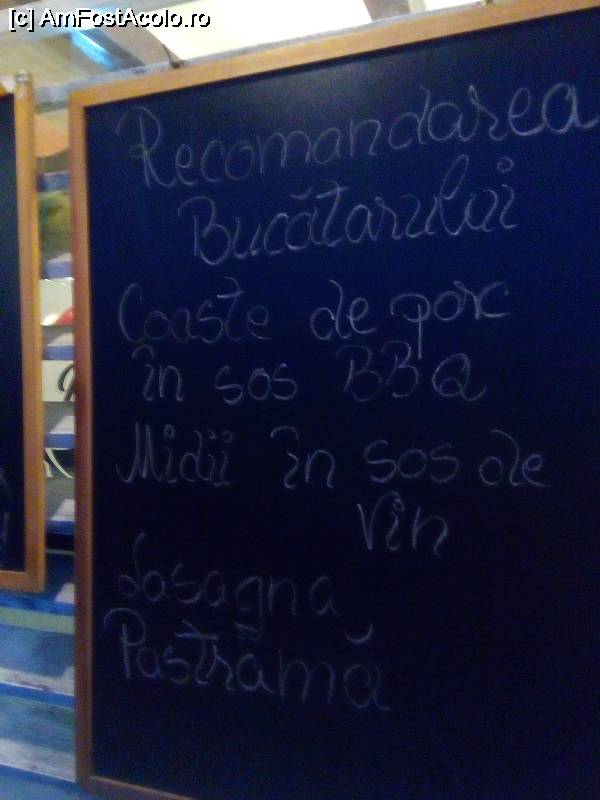 [c] AmFostAcolo.ro
Recomandarea
Bucătarului
Coaste de porc
în sos BBQ
Midii în sos de
vin
Lasagna
Pastramă